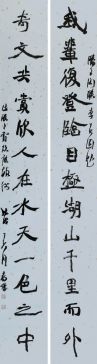 我輩復登臨目極湖山千里而外
奇文共賞欣人在水天一色之中